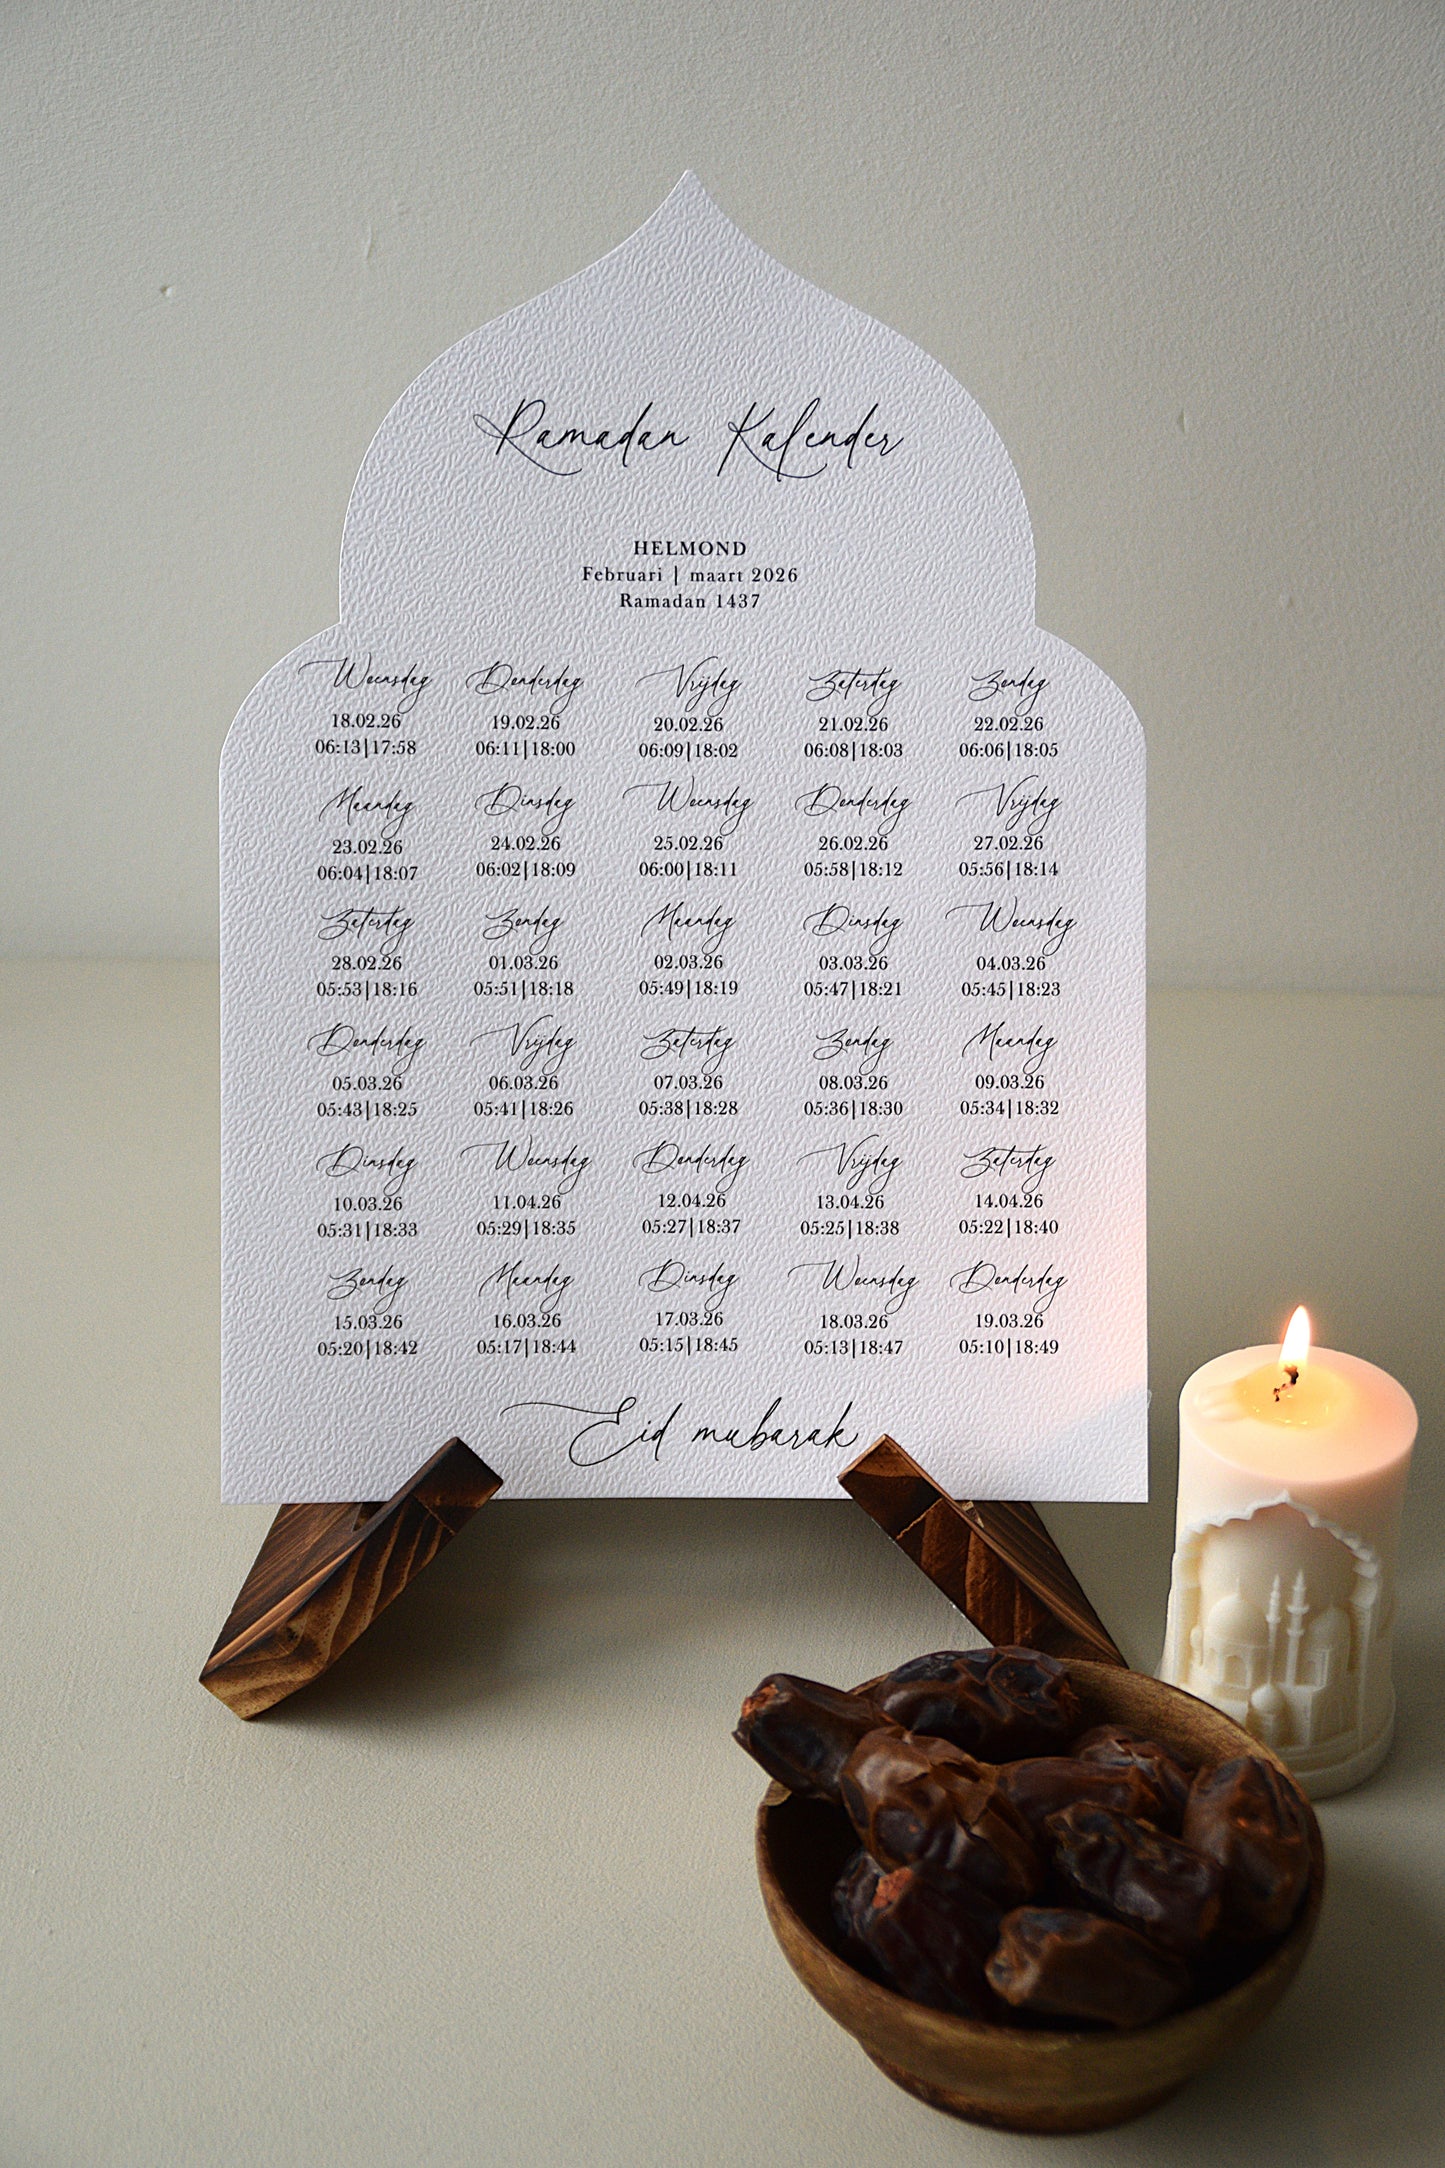 Ramadan Kalender
HELMOND
Februari | maart 2026
Ramadan 1437
Woensdag Donderdag Vrijdag Zaterdag Zondag
18.02.26 19.02.26 20.02.26 21.02.26 22.02.26
06:13|17:58 06:11|18:00 06:09|18:02 06:08|18:03 06:06|18:05
Maandag Dinsdag Woensdag Donderdag Vrijdag
23.02.26 24.02.26 25.02.26 26.02.26 27.02.26
06:04|18:07 06:02|18:09 06:00|18:11 05:58|18:12 05:56|18:14
Zaterdag Zondag Maandag Dinsdag Woensdag
28.02.26 01.03.26 02.03.26 03.03.26 04.03.26
05:53|18:16 05:51|18:18 05:49|18:19 05:47|18:21 05:45|18:23
Donderdag Vrijdag Zaterdag Zondag Maandag
05.03.26 06.03.26 07.03.26 08.03.26 09.03.26
05:43|18:25 05:41|18:26 05:38|18:28 05:36|18:30 05:34|18:32
Dinsdag Woensdag Donderdag Vrijdag Zaterdag
10.03.26 11.04.26 12.04.26 13.04.26 14.04.26
05:31|18:33 05:29|18:35 05:27|18:37 05:25|18:38 05:22|18:40
Zondag Maandag Dinsdag Woensdag Donderdag
15.03.26 16.03.26 17.03.26 18.03.26 19.03.26
05:20|18:42 05:17|18:44 05:15|18:45 05:13|18:47 05:10|18:49
Eid mubarak